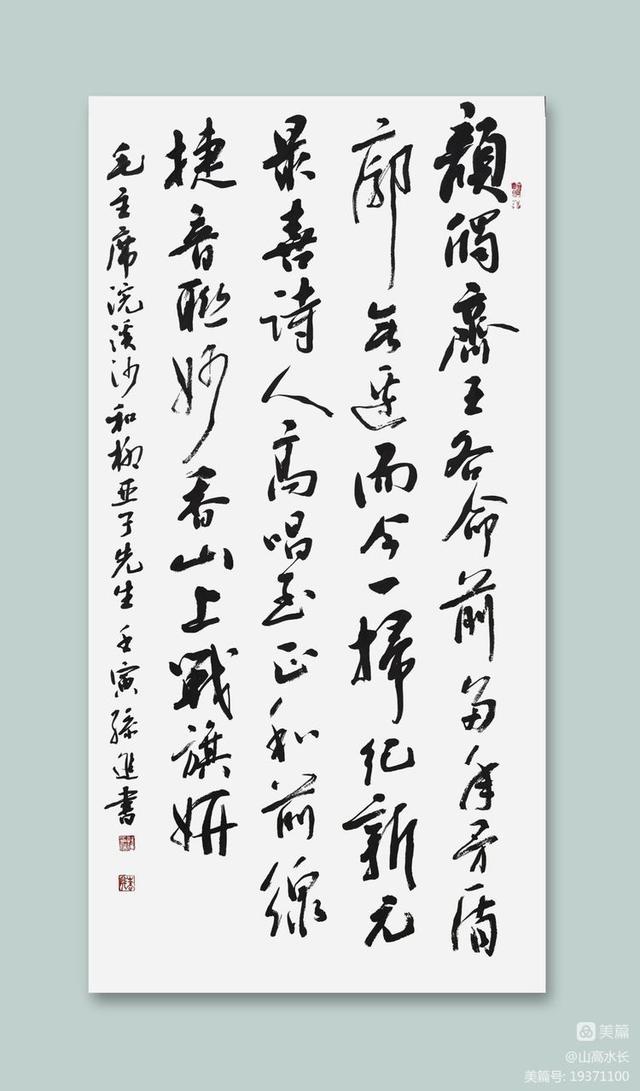 顏斶齊王各命前多年矛盾
廓无边而今一掃纪新元
最喜詩人高唱至正和前線
捷音聯妙香山上戰旗妍
毛主席浣溪沙和柳亚子先生 壬寅孫進書
美篇
@山高水长
美篇号: 19371100